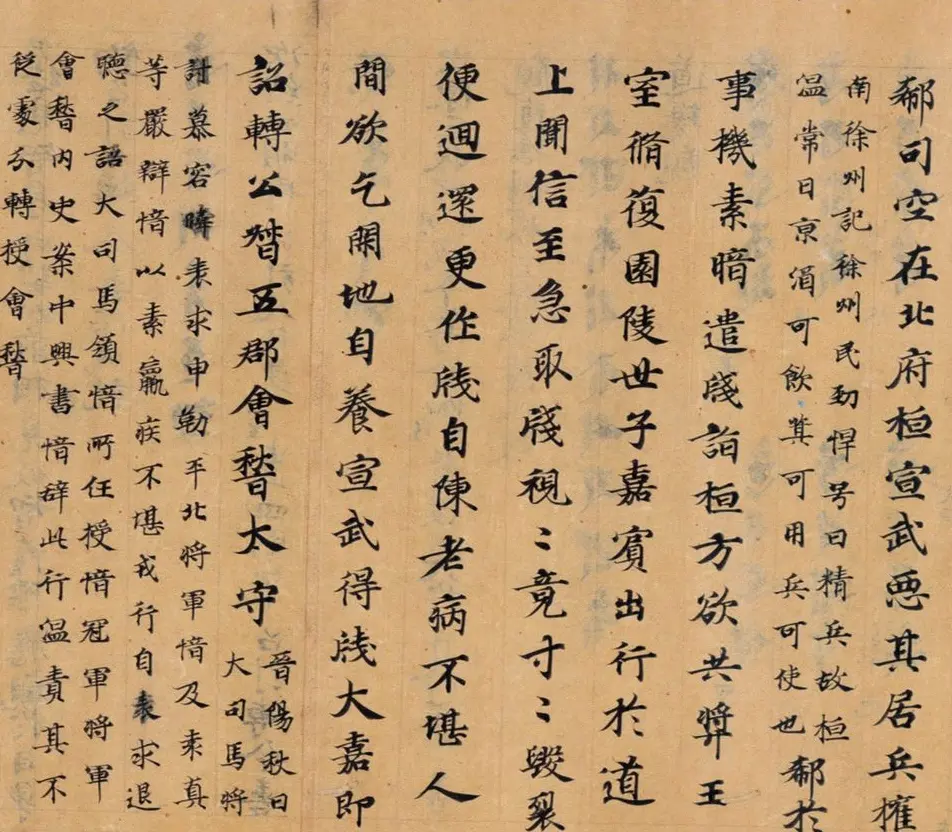 郗司空在北府桓宣武悪其居兵權
南徐州記徐州民勁悍号曰精兵故桓
温常曰京酒可飲箕可用兵可使也郗於
事機素暗遣牋詣桓方欲共奬王
室脩復園陵世子嘉賓出行於道
上聞信至急取牋視〻竟寸〻毀裂
便迴還更作牋自陳老病不堪人
間欲乞閑地自養宣武得牋大嘉即
詔轉公督五郡會稽太守晉陽秋曰
大司馬將
討慕容暐表求申勒平北將軍愔及袁真
等嚴辯愔以素羸疾不堪戎行自表求退
聽之詔大司馬領愔所任授愔冠軍將軍
會稽内史案中興書愔辞此行温責其不
從處分轉授會稽